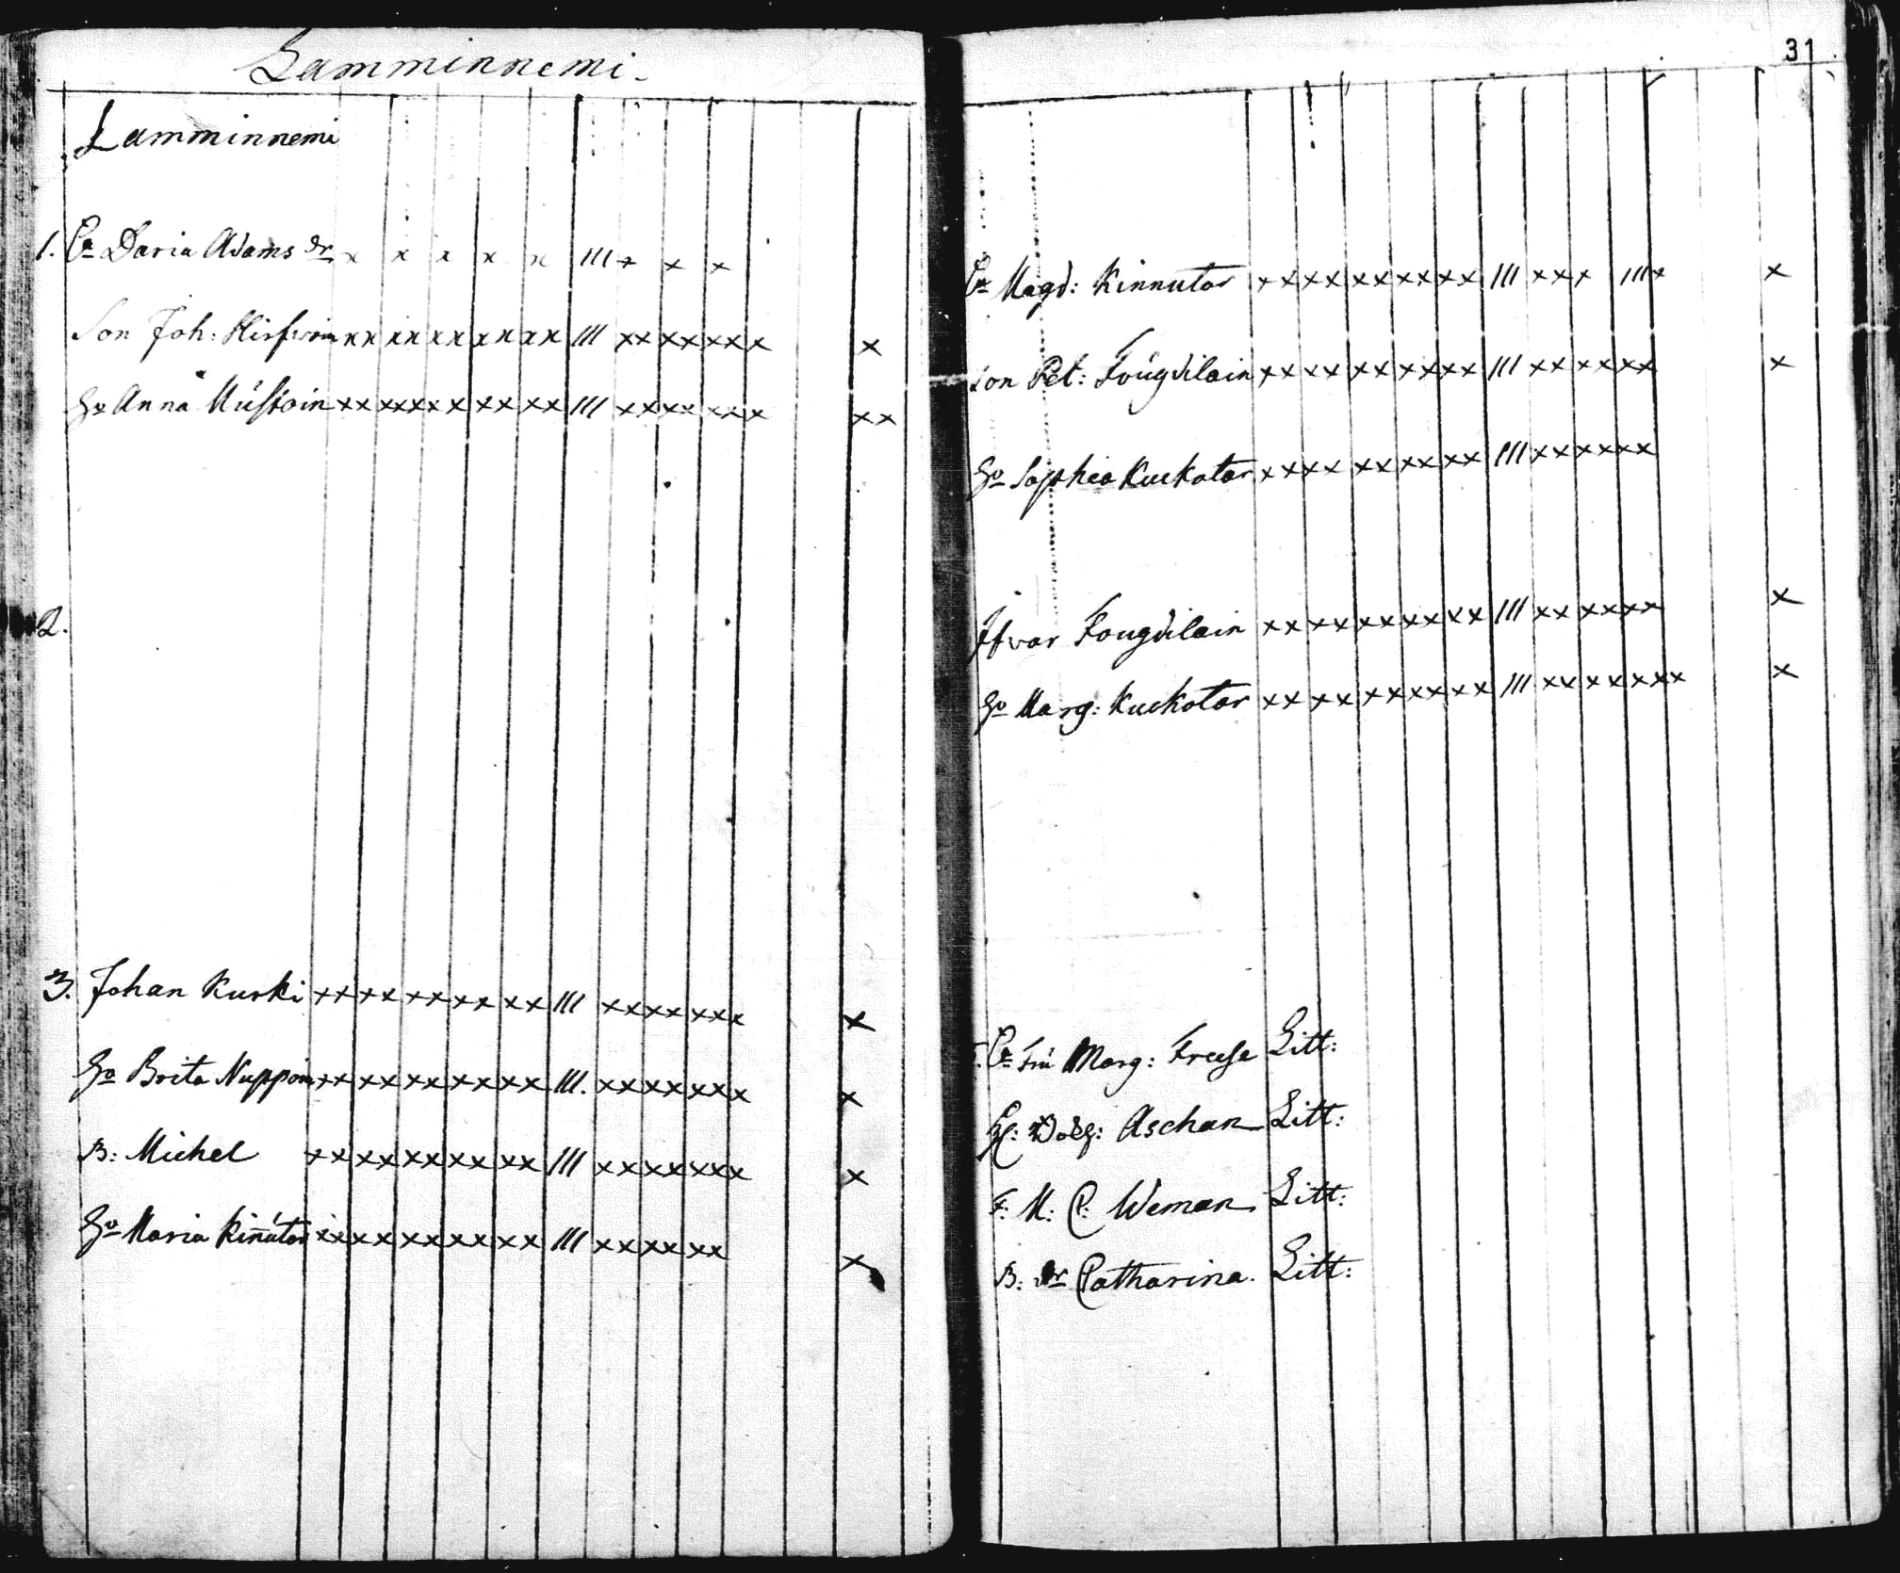 Lamminnemi.
Lamminnemi
1. Ea Daria Adams dr x x x x x III x x x
Son Joh: Hirfwoin xx xx xx xx xx III xx xx xxx x
Ho Anna Mustoin xx xxx x x xx xx III xx xx xxx xx
2.
3. Johan Kurki xx xx xx xx xx III xx xx xxx x
Ho Brita Nuppoin xx xx xx xx xx III. xx xx xxx x
B: Michel xx xx xx xx xx III xx xx xxx x
Ho Maria Kin̄utar xx xx xx xx xx III xx xx xx x
31
Ea Magd: Kinnutar xx xx xx xx xx III xx x III x x
Son Pet: Fougdilain xx xx xx xx xx III xx xx xx x
Ho Sophia Kuckotar xx xx xx xx xx III xx xx xx
Ifvar Fougdilain xx xx xx xx xx III xx xx xx x
Ho Marg: Kuckotar xx xx xx xx xx III xx xx xxx x
Ea Fru Marg: Freese Litt:
Aschan Litt:
F: M: C: Weman Litt:
B: dr Catharina. Litt: